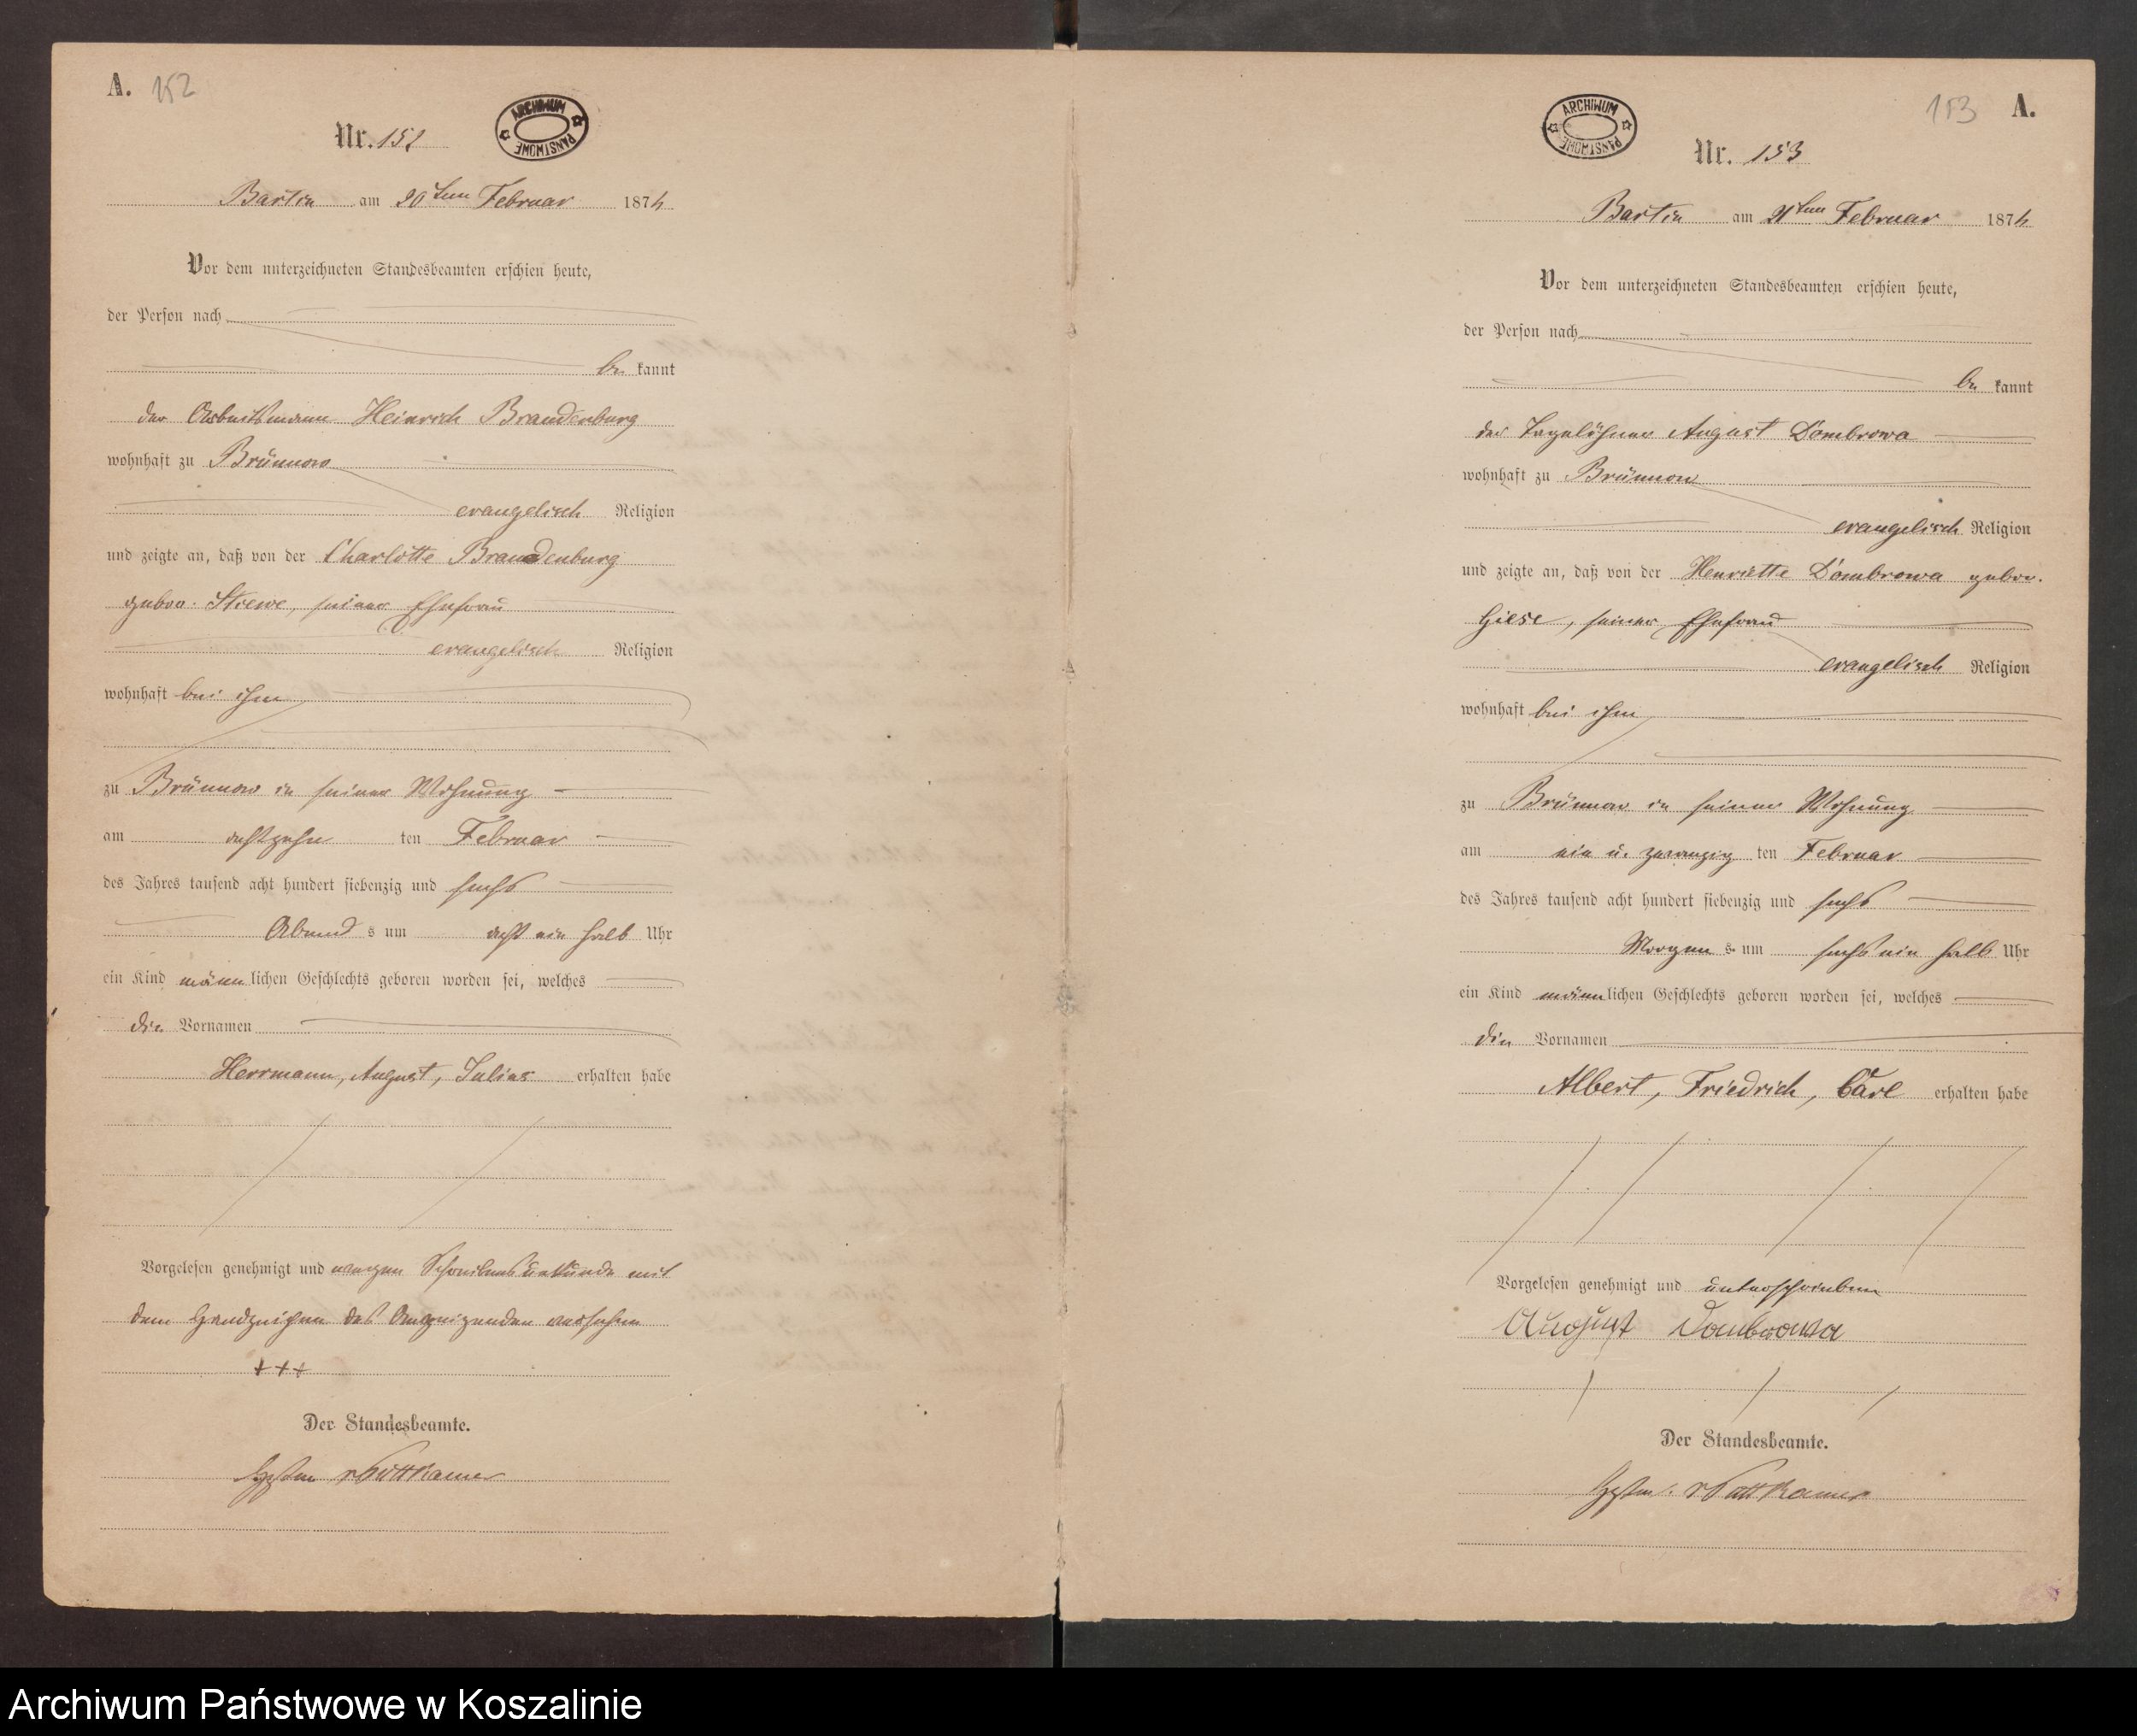 A. 152
ARCHIWUM PAŃSTWOWE
Nr. 152
Bartin am 20ten Februar 1876
Vor dem unterzeichneten Standesbeamten erschien heute,
der Person nach
be kannt
der Arbeitsmann Heinrich Brandenburg
wohnhaft zu Brünnow
evangelisch Religion
und zeigte an, daß von der Charlotte Brandenburg
gebor. Stiewe, seiner Ehefrau
evangelisch Religion
wohnhaft bei ihm
zu Brünnow in seiner Wohnung
am achtzehn ten Februar
des Jahres tausend acht hundert siebenzig und sechs
Abend s um acht ein halb Uhr
ein Kind männlichen Geschlechts geboren worden sei, welches
die Vornamen
Herrmann, August, Julius erhalten habe
Vorgelesen genehmigt und wegen Schreibensunkunde mit
dem Handzeichen des Anzeigenden versehen
+++
Der Standesbeamte.
v Puttkamer
153 A.
ARCHIWUM PAŃSTWOWE
Nr. 153
Bartin am 21ten Februar 1876
Vor dem unterzeichneten Standesbeamten erschien heute,
der Person nach
be kannt
der Tagelöhner August Dombrowa
wohnhaft zu Brünnow
evangelisch Religion
und zeigte an, daß von der Henriette Dombrowa gebor.
Giese, seiner Ehefrau
evangelisch Religion
wohnhaft bei ihm
zu Brünnow in seiner Wohnung
am ein u. zwanzig ten Februar
des Jahres tausend acht hundert siebenzig und sechs
Morgen s um sechs ein halb Uhr
ein Kind männlichen Geschlechts geboren worden sei, welches
die Vornamen
Albert, Friedrich, Carl erhalten habe
Vorgelesen genehmigt und unterschrieben
August Dombrowa
Der Standesbeamte.
v Puttkamer
Archiwum Państwowe w Koszalinie